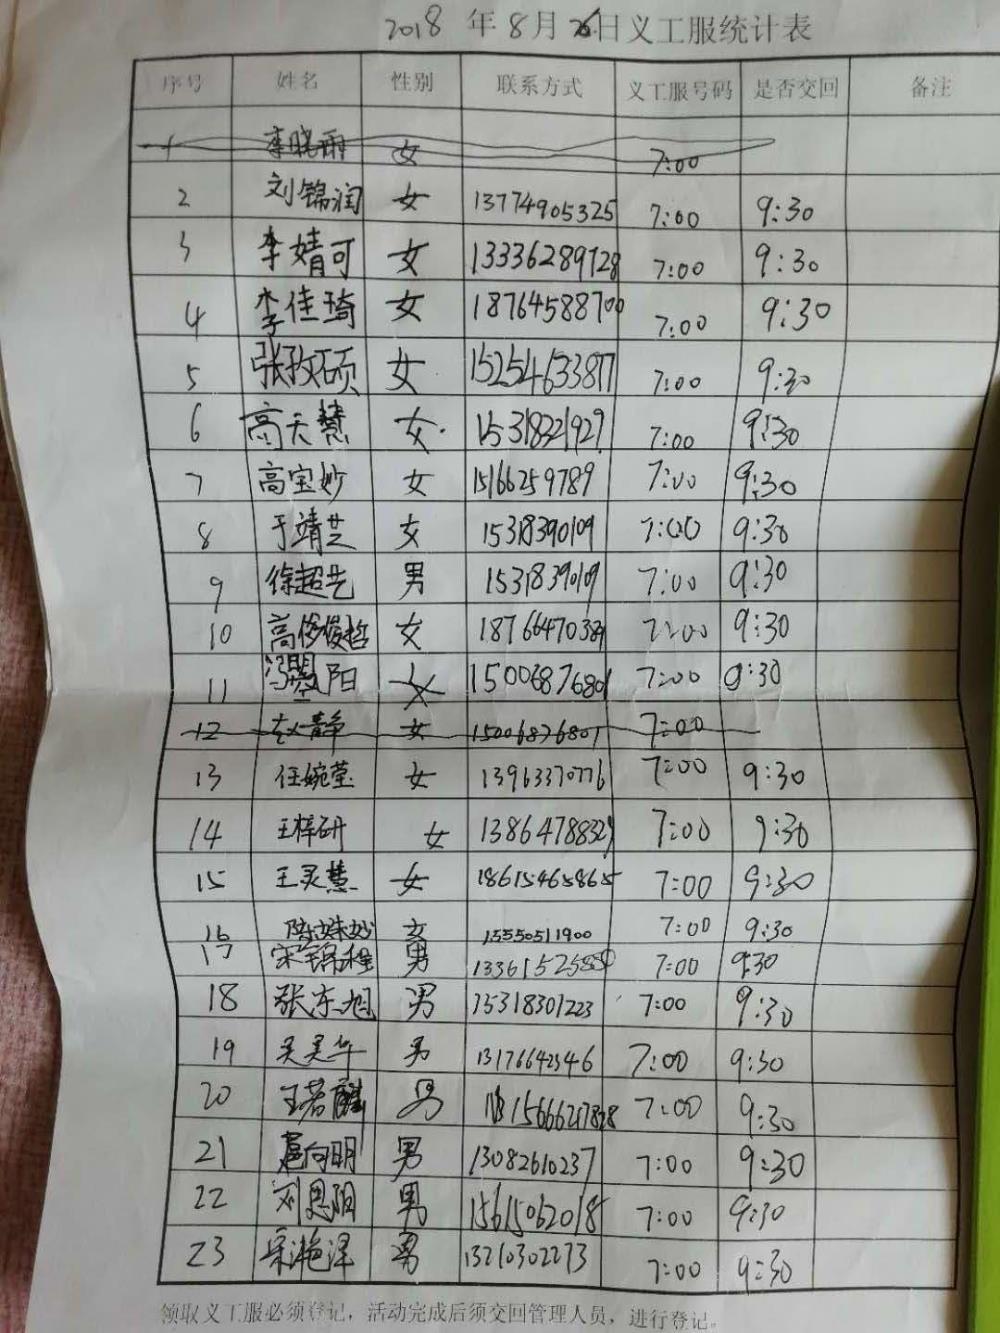 2018 年 8 月 26 日义工服统计表
序号 姓名 性别 联系方式 义工服号码 是否交回 备注
1 李晓雨 女 7:00
2 刘锦润 女 13774905325 7:00 9:30
3 李婧可 女 13336289728 7:00 9:30
4 李佳琦 女 18764588700 7:00 9:30
5 张孜硕 女 15254633877 7:00 9:30
6 高天慧 女 15318321927 7:00 9:30
7 高宝妙 女 15166259789 7:00 9:30
8 于靖芸 女 15318390109 7:00 9:30
9 徐超艺 男 15318390109 7:00 9:30
10 高 女 7:00 9:30
11 冯 阳 女 15006876801 7:00 9:30
12 赵静 女 15006876801 7:00
13 任婉莹 女 13963370776 7:00 9:30
14 王梓研 女 13864788329 7:00 9:30
15 王灵慧 女 18615465865 7:00 9:30
16 陈姝妙 女 13550511900 7:00 9:30
17 宋锦程 男 7:00 9:30
18 张东旭 男 15318301223 7:00 9:30
19 吴昊华 男 13176642346 7:00 9:30
20 王若麒 男 7:00 9:30
21 向明 男 13082610237 7:00 9:30
22 刘恩阳 男 15615062018 7:00 9:30
23 男 13210302273 7:00 9:30
领取义工服必须登记，活动完成后须交回管理人员，进行登记。